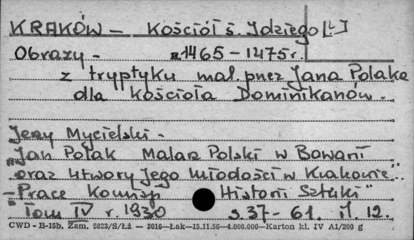 KRAKÓW – Kościół ś. Idziego [Ł]
Obrazy – z 1465 – 1475 r.
z tryptyku mal. przez Jana Polaka
dla Kościoła Dominikanów.
Jerzy Mycielski –
"Jan Polak Malarz Polski w Bawarii
oraz utwory jego młodości w Krakowie"
"Prace Komisji Historii Sztuki"
Tom IV r. 1930 s. 37 – 61. il. 12.
CWD - B-15b. Zam. 5823/S/Łá — 3016—Łak—15.11.56—4.000.000—Karton kl. IV A1/200 g